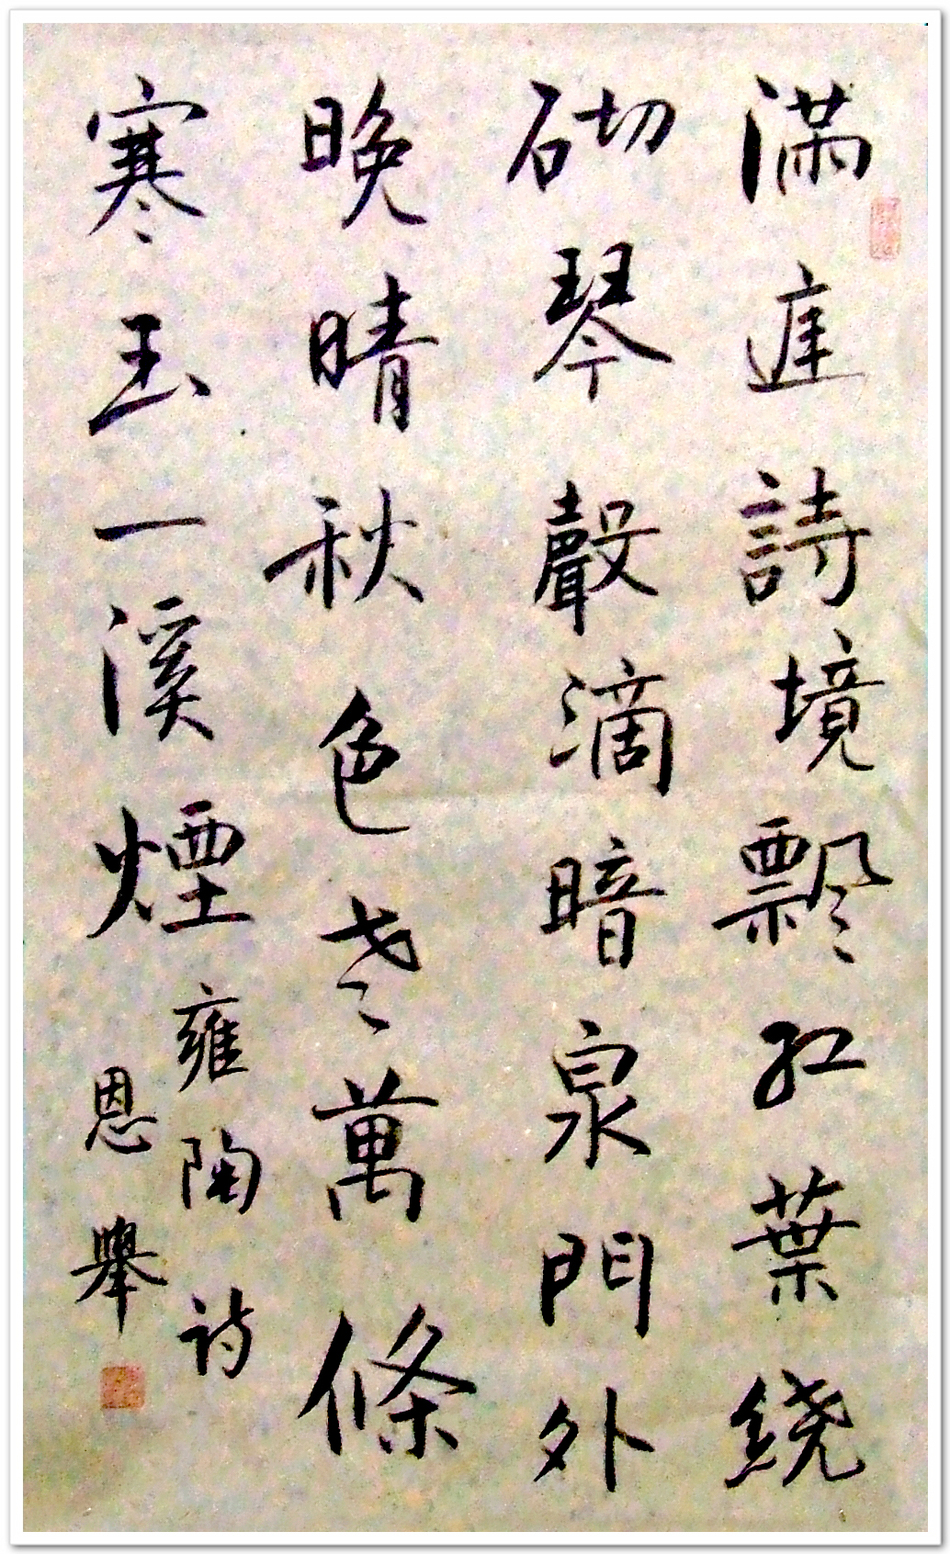 满庭詩境飄红葉绕
砌琴聲滴暗泉門外
晚晴秋色老萬條
寒玉一溪煙
雍陶诗
恩舉